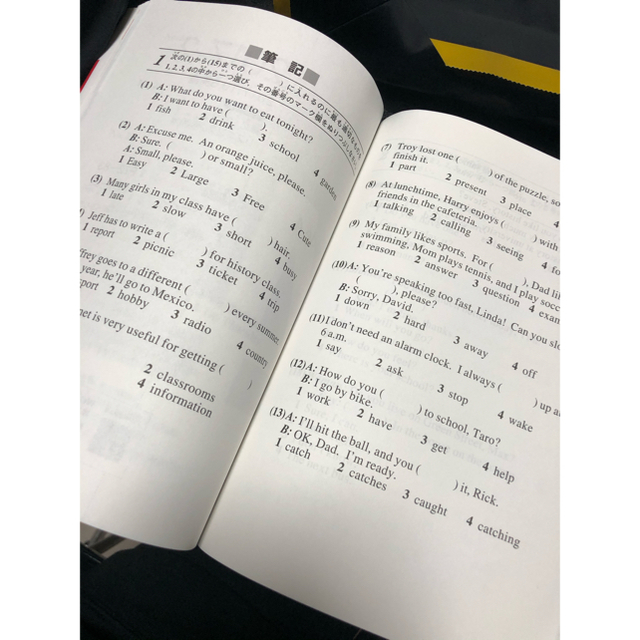 ■筆 記■
1 次の(1)から(15)までの( )に入れるのに最も適切なものを
1, 2, 3, 4の中から一つ選び、その番号のマーク欄をぬりつぶしなさい。
(1) A: What do you want to eat tonight?
B: I want to have ( ).
1 fish 2 drink 3 school 4 garden
(2) A: Excuse me. An orange juice, please.
B: Sure. ( ) or small?
A: Small, please.
1 Easy 2 Large 3 Free 4 Cute
(3) Many girls in my class have ( ) hair.
1 late 2 slow 3 short 4 busy
Jeff has to write a ( ) for history class.
1 report 2 picnic 3 ticket 4 trip
frey goes to a different ( ) every summer.
year, he'll go to Mexico.
port 2 hobby 3 radio 4 country
net is very useful for getting ( )
2 classrooms
4 information
(7) Troy lost one ( ) of the puzzle, so
finish it.
1 part 2 present 3 place 4
(8) At lunchtime, Harry enjoys ( ) with
friends in the cafeteria.
1 talking 2 calling 3 seeing 4 fo
(9) My family likes sports. For ( ), Dad lik
swimming, Mom plays tennis, and I play socc
1 reason 2 answer 3 question 4 exam
(10) A: You're speaking too fast, Linda! Can you slo
( ), please?
B: Sorry, David.
1 down 2 hard 3 away 4 off
(11) I don't need an alarm clock. I always ( ) up a
6 a.m.
1 say 2 ask 3 stop 4 wake
(12) A: How do you ( ) to school, Taro?
B: I go by bike.
1 work 2 have 3 get 4 help
(13) A: I'll hit the ball, and you ( ) it, Rick.
B: OK, Dad. I'm ready.
1 catch 2 catches 3 caught 4 catching